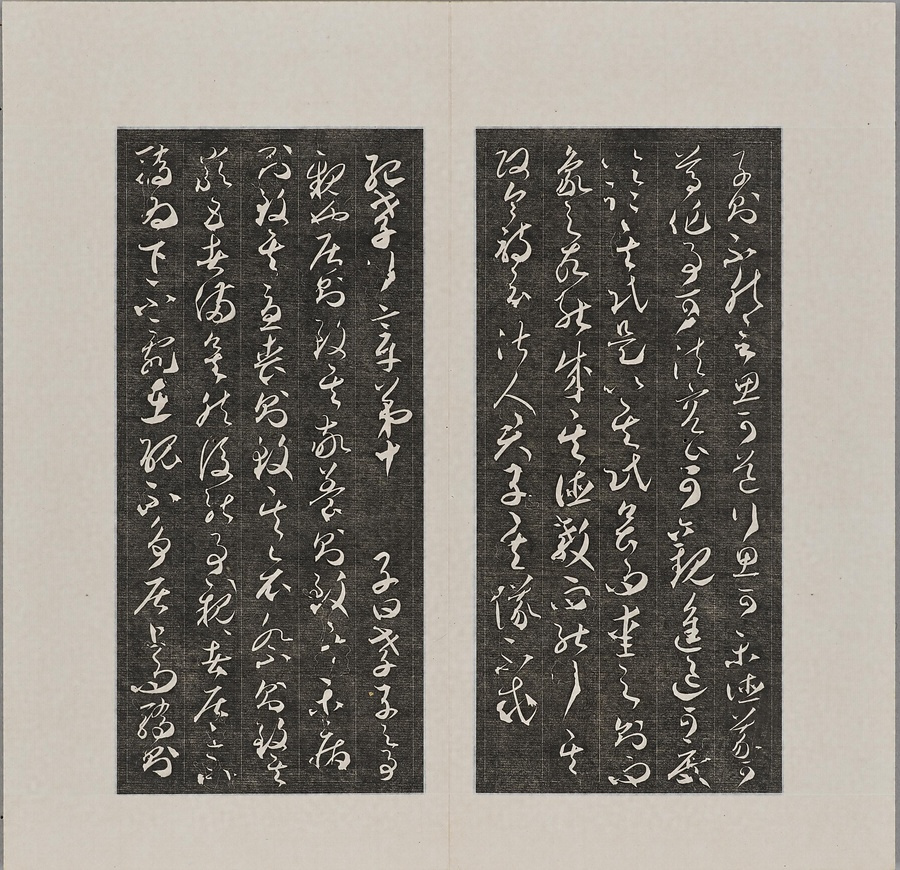 子則不然言思可道行思可樂德義可
尊作事可法容止可觀進退可度
以臨其民是以其民畏而愛之則而
象之故能成其德教而能行其
政令詩云淑人君子其儀不忒
紀孝行章第十 子曰孝子之事
親也居則致其敬養則致其樂病
則致其憂喪則致其哀祭則致其
嚴五者備矣然後能事親〻者居上不
驕為下不亂在醜不爭居上而驕則